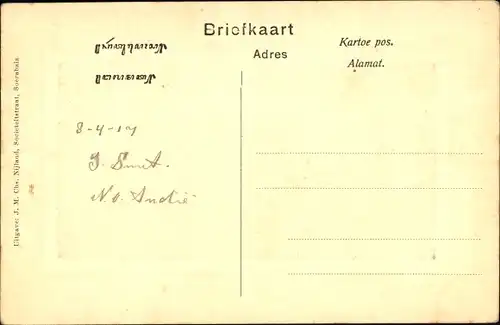 Briefkaart
Adres
Kartoe pos.
Alamat.
8-4-17
J. Smet.
N.O. Indië
Uitgave: J. M. Chs. Nijland, Societeitstraat, Soerabaia